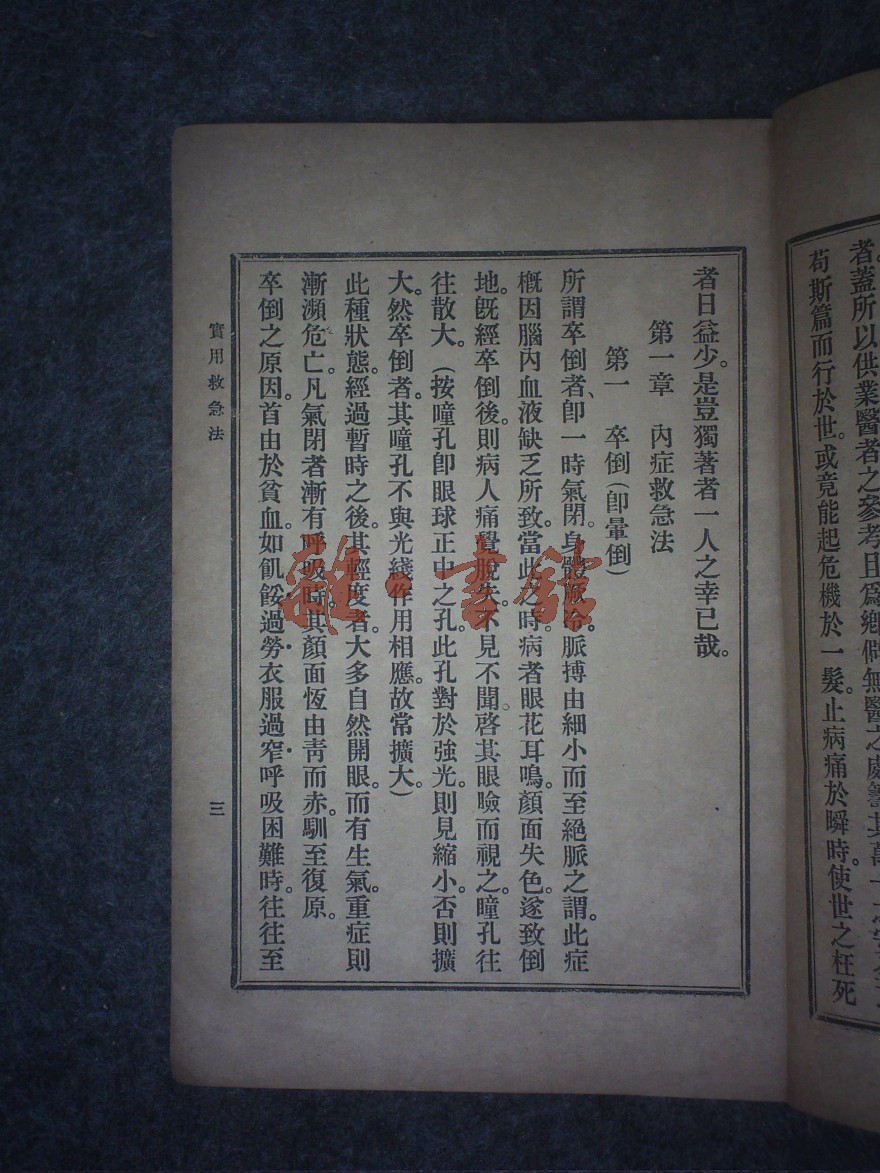 者。蓋所以供業醫者之參考。且爲鄉僻無醫之處。籌其萬一
苟斯篇而行於世。或竟能起危機於一髮。止病痛於瞬時。使世之枉死
者日益少。是豈獨著者一人之幸已哉。
第一章　內症救急法
第一　卒倒（卽暈倒）
所謂卒倒者、卽一時氣閉。身體厥冷。脈搏由細小而至絕脈之謂。此症
槪因腦內血液缺乏所致。當此之時。病者眼花耳鳴。顏面失色。遂致倒
地。旣經卒倒後。則病人痛覺脫失。不見不聞。啓其眼瞼而視之。瞳孔往
往散大。（按瞳孔卽眼球正中之孔。此孔對於強光。則見縮小。否則擴
大。然卒倒者。其瞳孔不與光綫作用相應。故常擴大。）
此種狀態。經過暫時之後。其輕度者。大多自然開眼。而有生氣。重症則
漸瀕危亡。凡氣閉者漸有呼吸時。其顏面恆由靑而赤。馴至復原。
卒倒之原因。首由於貧血。如飢餒·過勞·衣服過窄·呼吸困難時。往往至
實用救急法
三
雜·書館